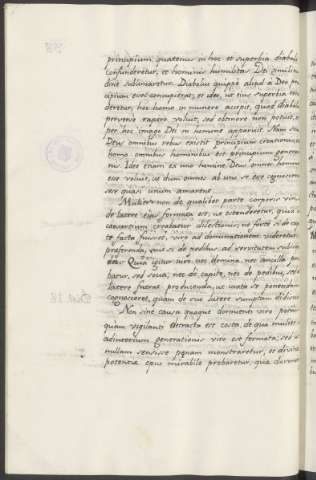 principium quatenus in hoc et superbia diaboli
confunderetur, et hominis humilitas Dei similitu
dine sublimaretur. Diabolus quippe aliud a Deo prin
cipium esse concupierat, et ideo, ut eius superbia
deretur, hoc homo in munere accepit, quod diabolus
perverse rapere voluit, sed obtinere non potuit, et
per hoc imago Dei in homine apparuit. Nam sicut
Deus omnibus rebus existit principium creationis, ita
homo omnibus hominibus est principium genera
tionis. Ideo etiam ex uno homine Deus omnes homines
esse voluit, ut dum omnes ab uno se esse
sese quasi unum amarent.
Mulier non de qualibet parte corporis viri, sed
de latere eius formata est, ut ostenderetur, quia in
consortium creabatur dilectionis, ne forte si de capi
te facta fuisset, viro ad dominationem videretur
praeferenda, aut si de pedibus, ad servitutem
Quia igitur viro, nec domina, nec ancilla
batur, sed socia, nec de capite, nec de pedibus, sed de
latere fuerat producenda, ut iuxta se ponendam
cognosceret, quam de suo latere sumptam
Non sine causa quoque dormienti viro potius
quam vigilanti detracta est costa, de qua mulier in
adiutorium generationis viro est formata, sed ut
nullam sensisse poenam monstraretur, et divinae
potentiae opus mirabile probaretur, quae